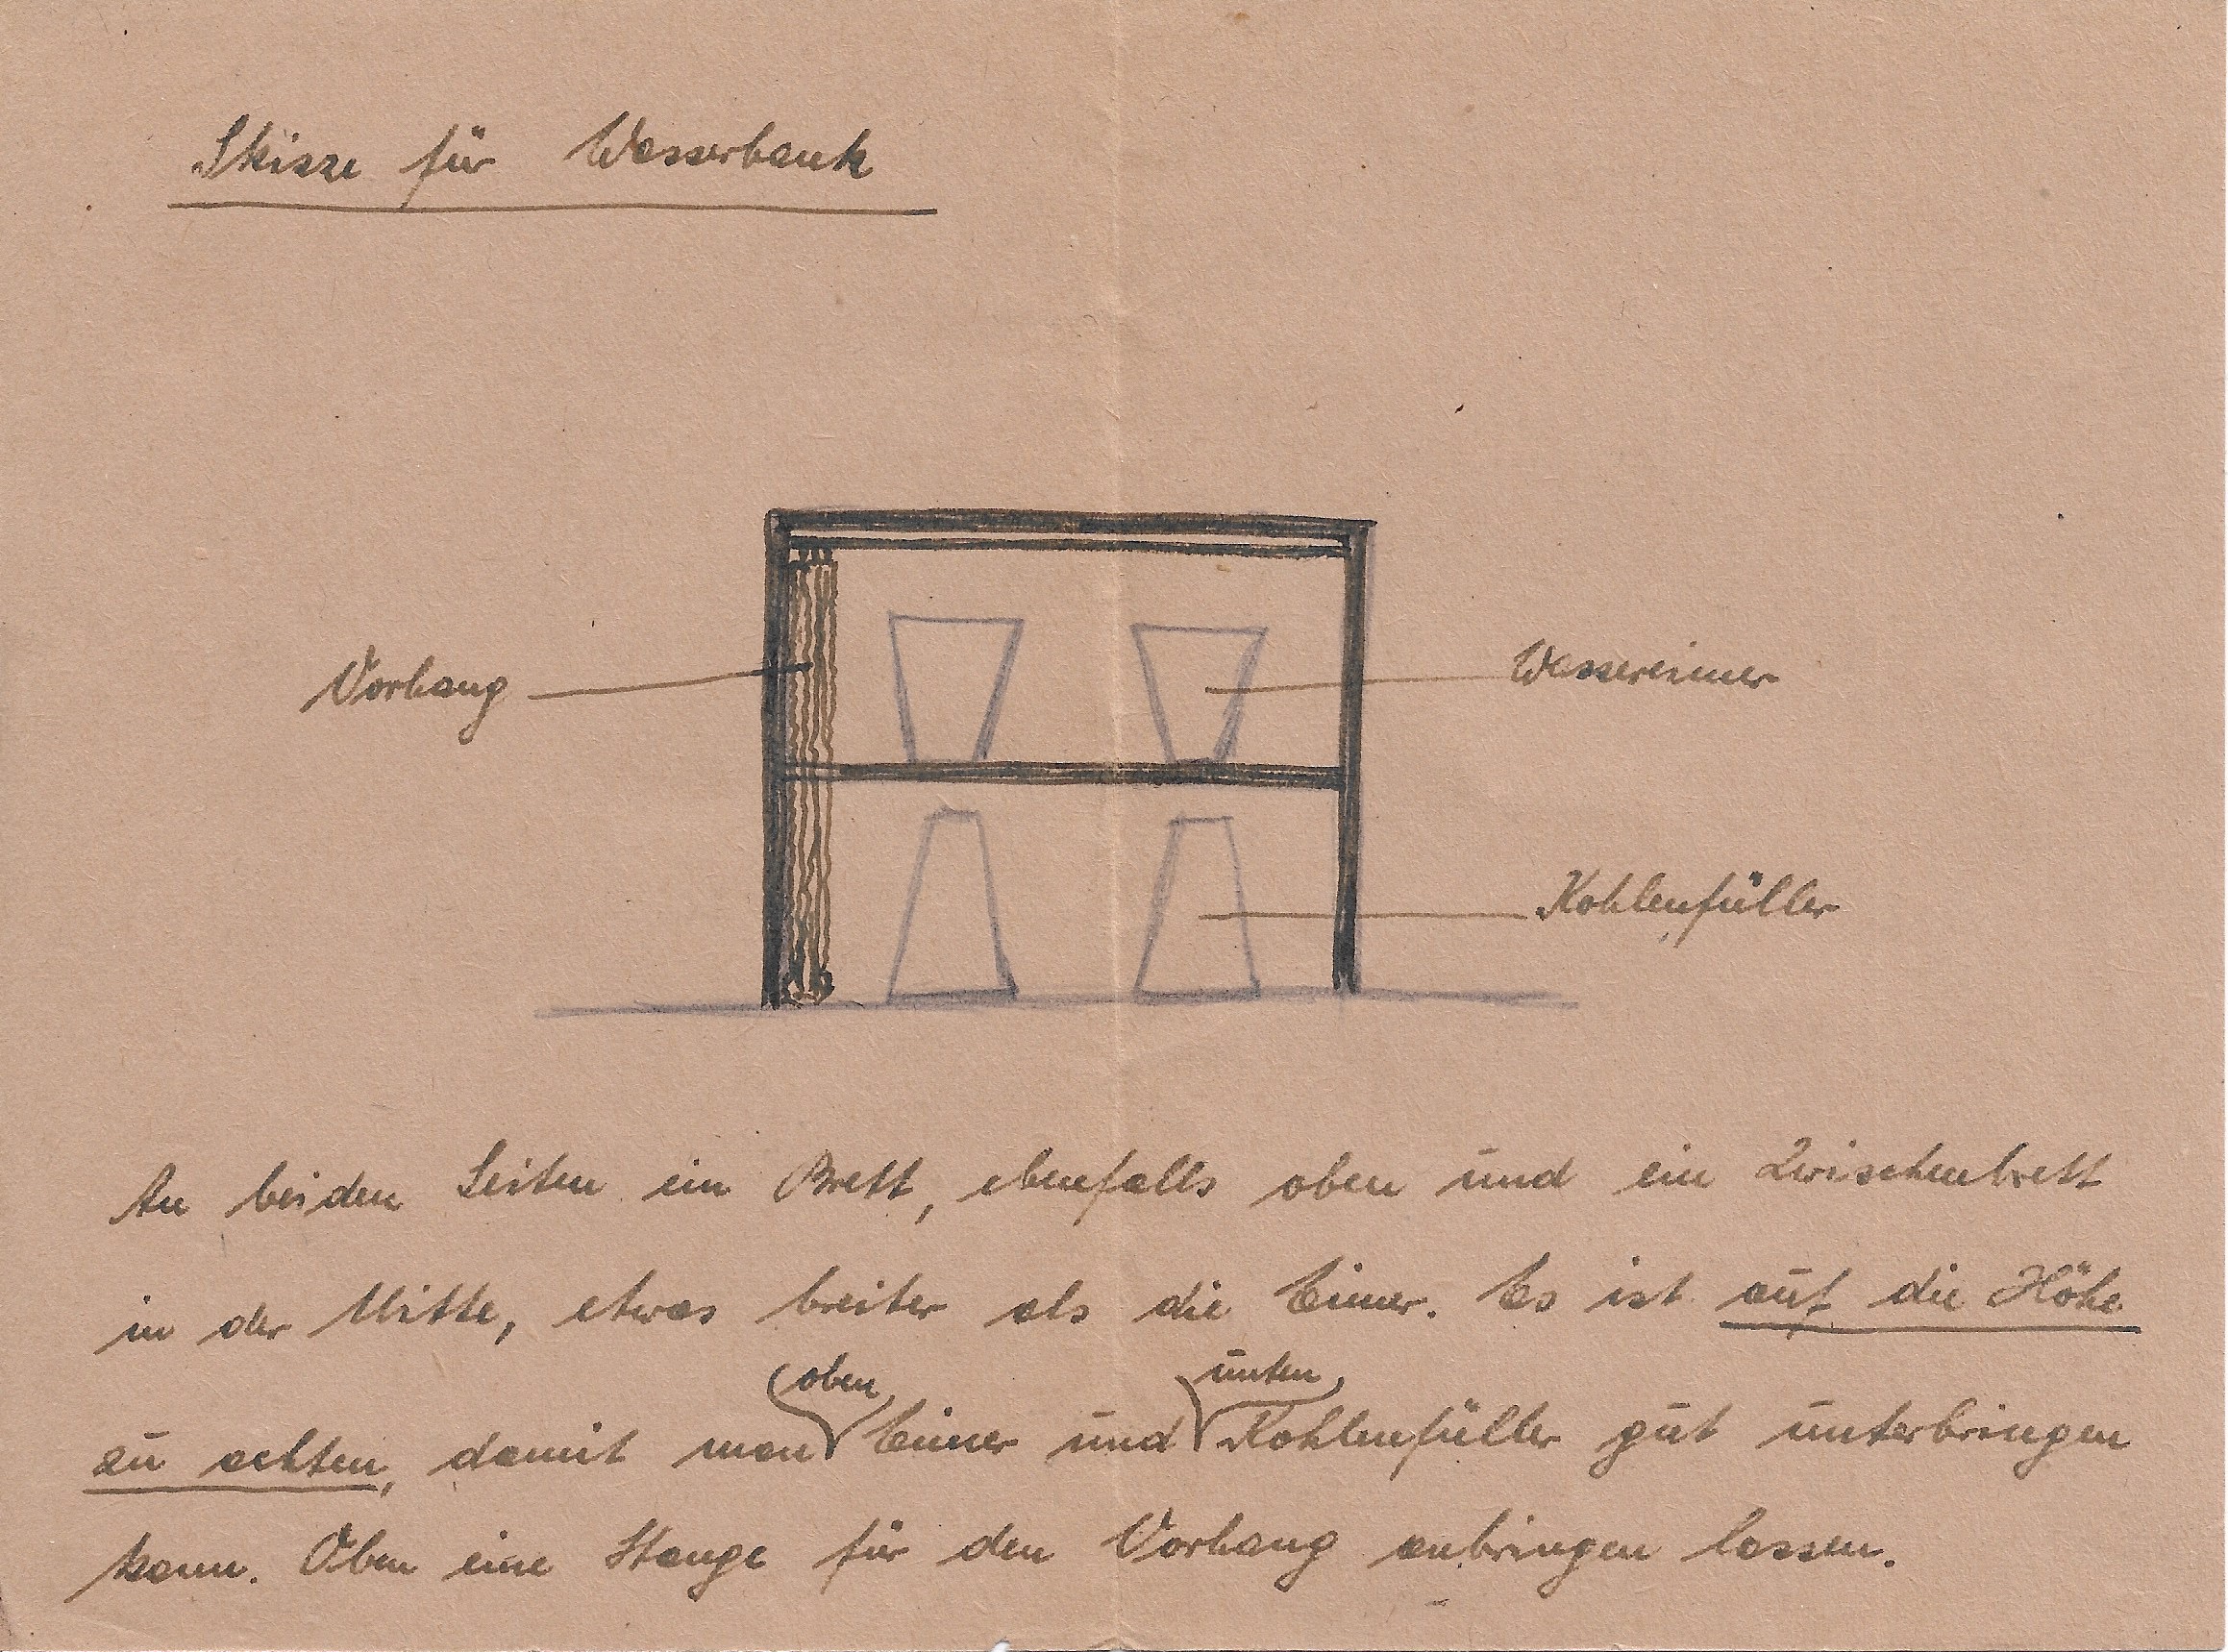 Skizze für Wasserbank
Vorhang
Wassereimer
Kohlenfüller
An beiden Seiten ein Brett, ebenfalls oben und ein Zwischenbrett
in der Mitte, etwas breiter als die Eimer. Es ist auf die Höhe
oben unten
zu achten, damit man Eimer und Kohlenfüller gut unterbringen
kann. Oben eine Stange für den Vorhang anbringen lassen.